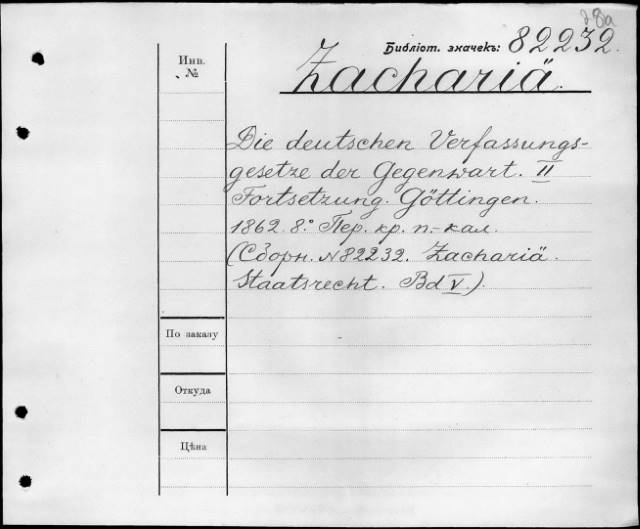 28а
Библіот. значекъ: 82232.
Инв.
№
Zachariä.
Die deutschen Verfassungs-
gesetze der Gegenwart. II
Fortsetzung. Göttingen.
1862. 8.° Пер. кр. п.-кал.
(Сборн. N82232. Zachariä.
Staatsrecht. Bd V.).
По заказу
Откуда
Цѣна